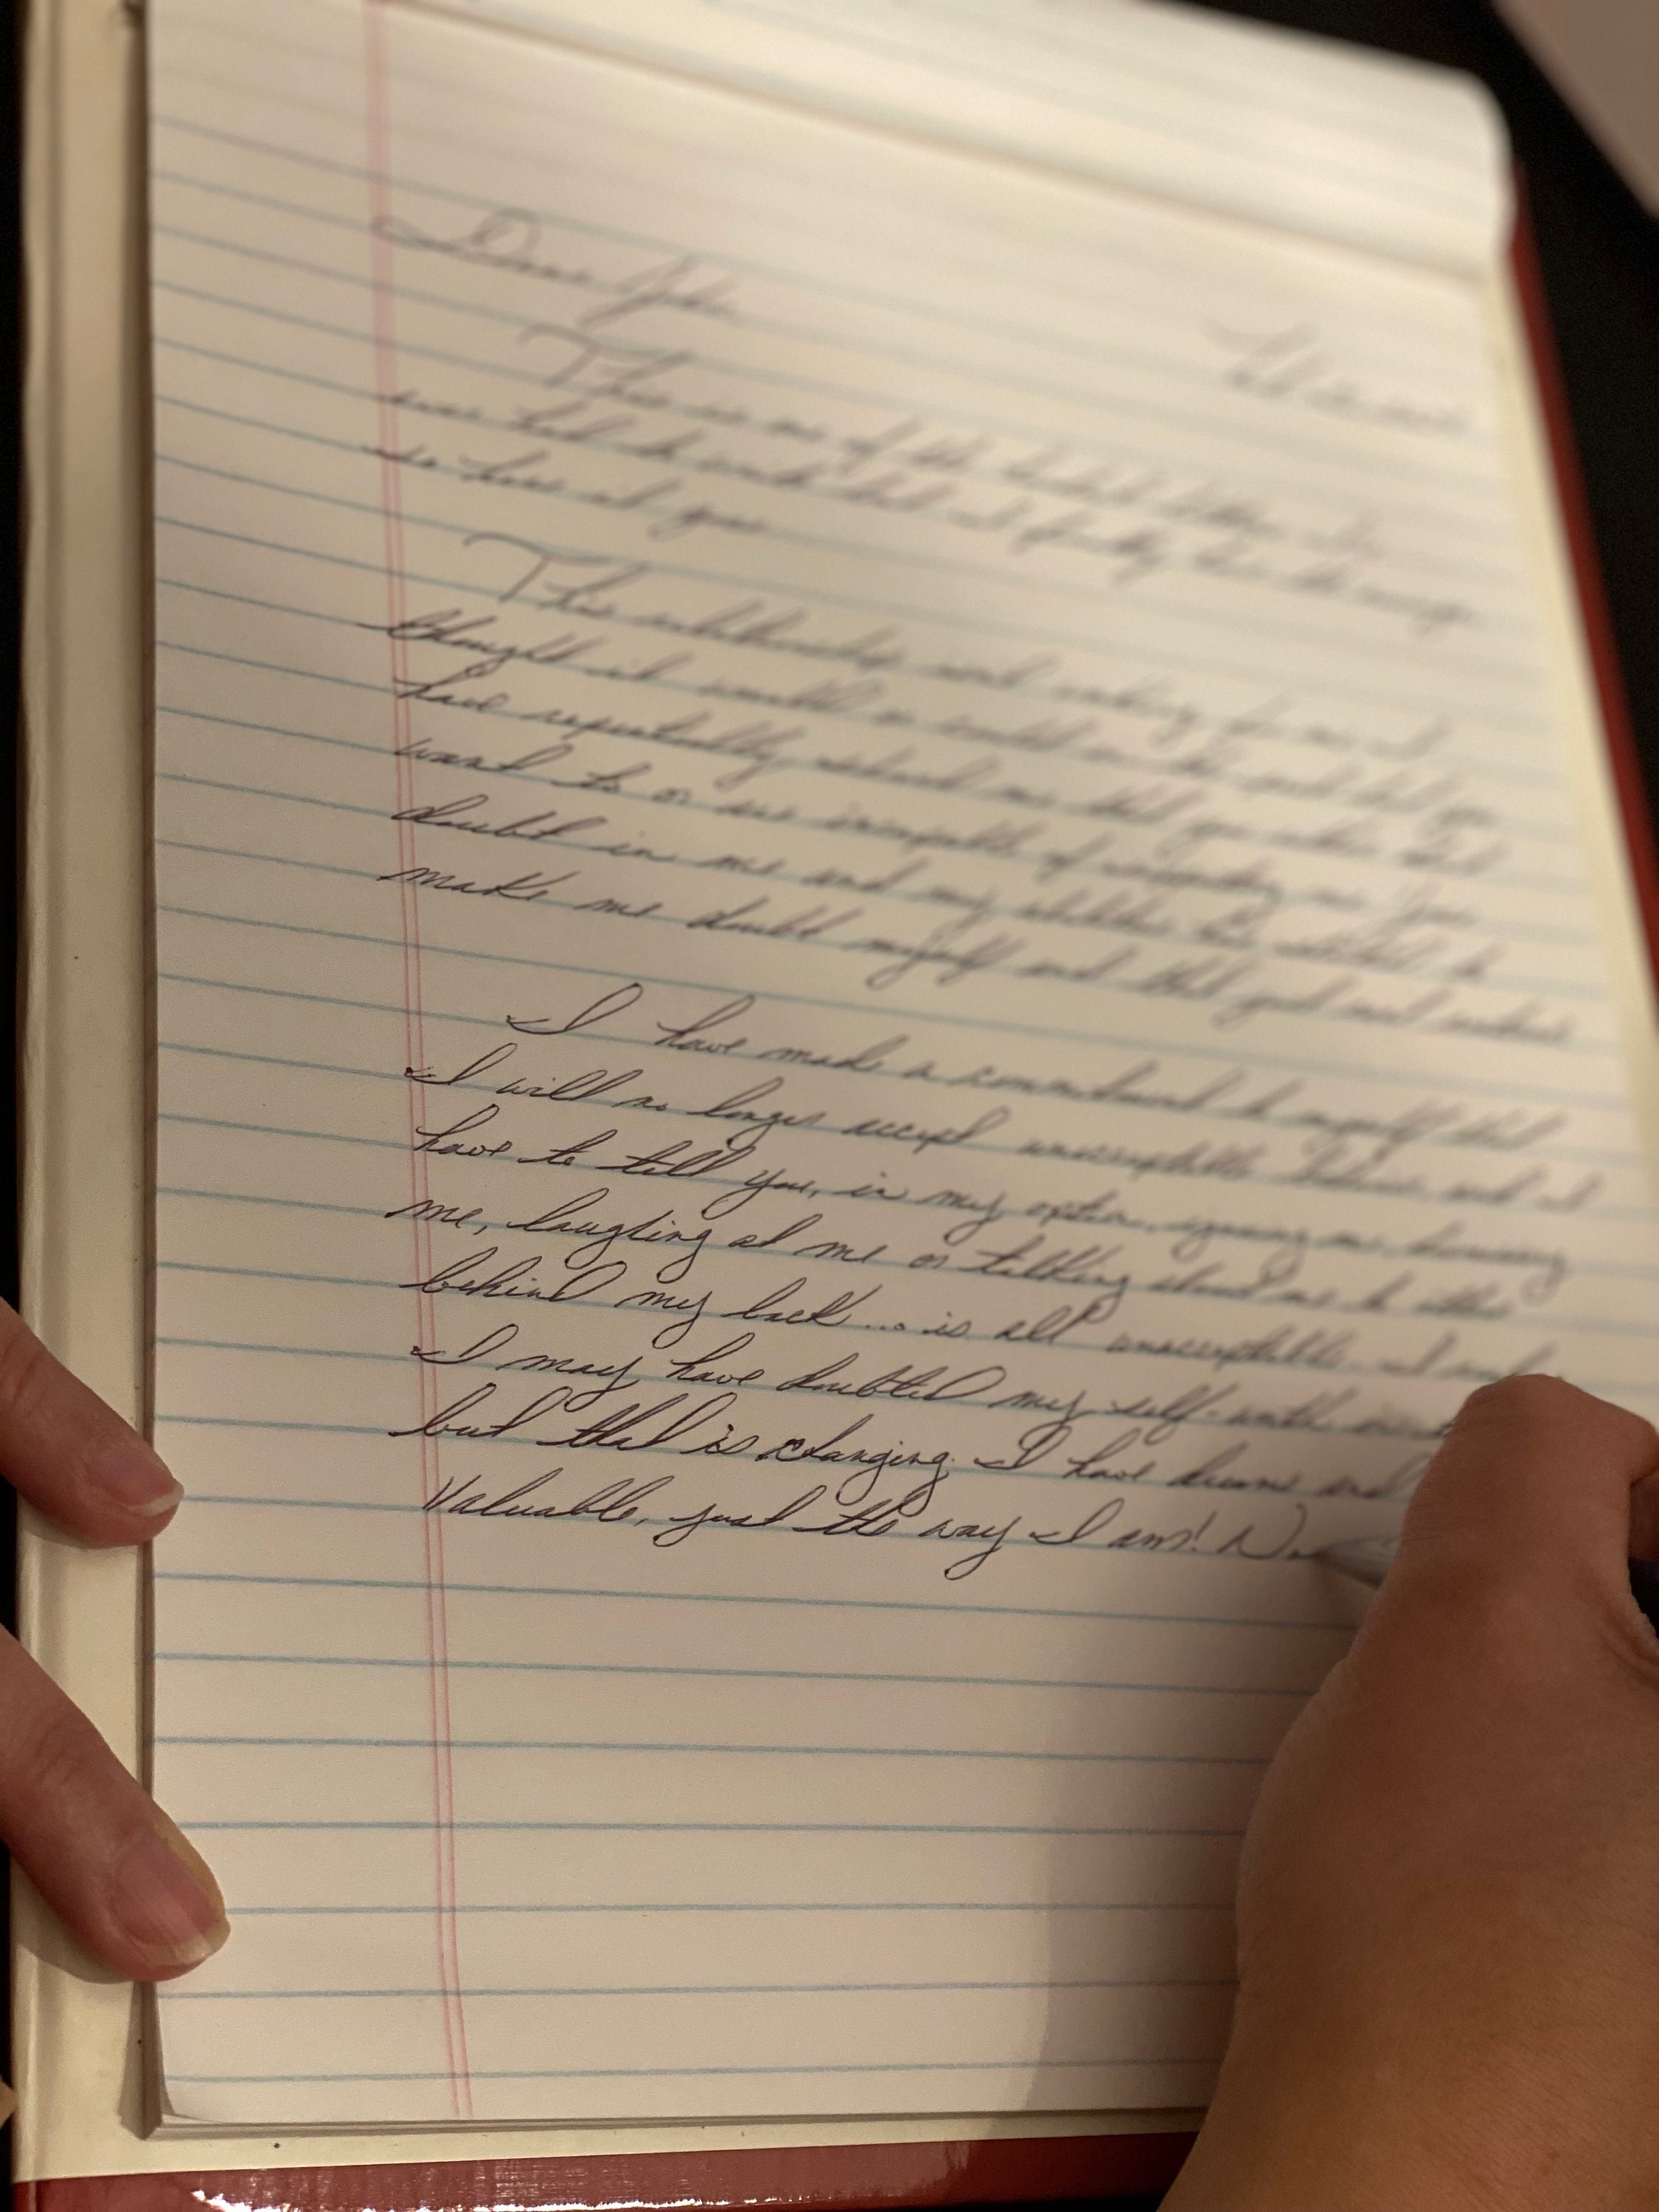 Dear John
This is one of the hardest letters I've
ever had to write but I finally have the courage
so here it goes
This relationship isn't working for me. I
thought it would or could over the years but you
have repeatedly showed me that you either don't
want to or are incapable of supporting me. You
doubt in me and my abilities
make me doubt myself and that
I have made a commitment to myself that
I will no longer accept unacceptable behavior and I
have to tell you, in my opinion, ignoring me, dismissing
me, laughing at me or talking about me to others
behind my back... is all unacceptable. I
I may have doubted my self-worth
but that is changing. I have dreams and
Valuable, just the way I am!